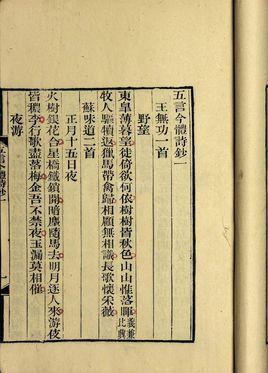 五言今體詩鈔一
王無功一首
野望
東臯薄暮望徙倚欲何依樹樹皆秋色山山惟落暉義兼比興
牧人驅犢返獵馬帶禽歸相顧無相識長歌懷采薇
蘇味道二首
正月十五日夜
火樹銀花合星橋鐵鎖開暗塵隨馬去明月逐人來游伎
皆穠李行歌盡落梅金吾不禁夜玉漏莫相催
夜游
五言今體詩鈔一